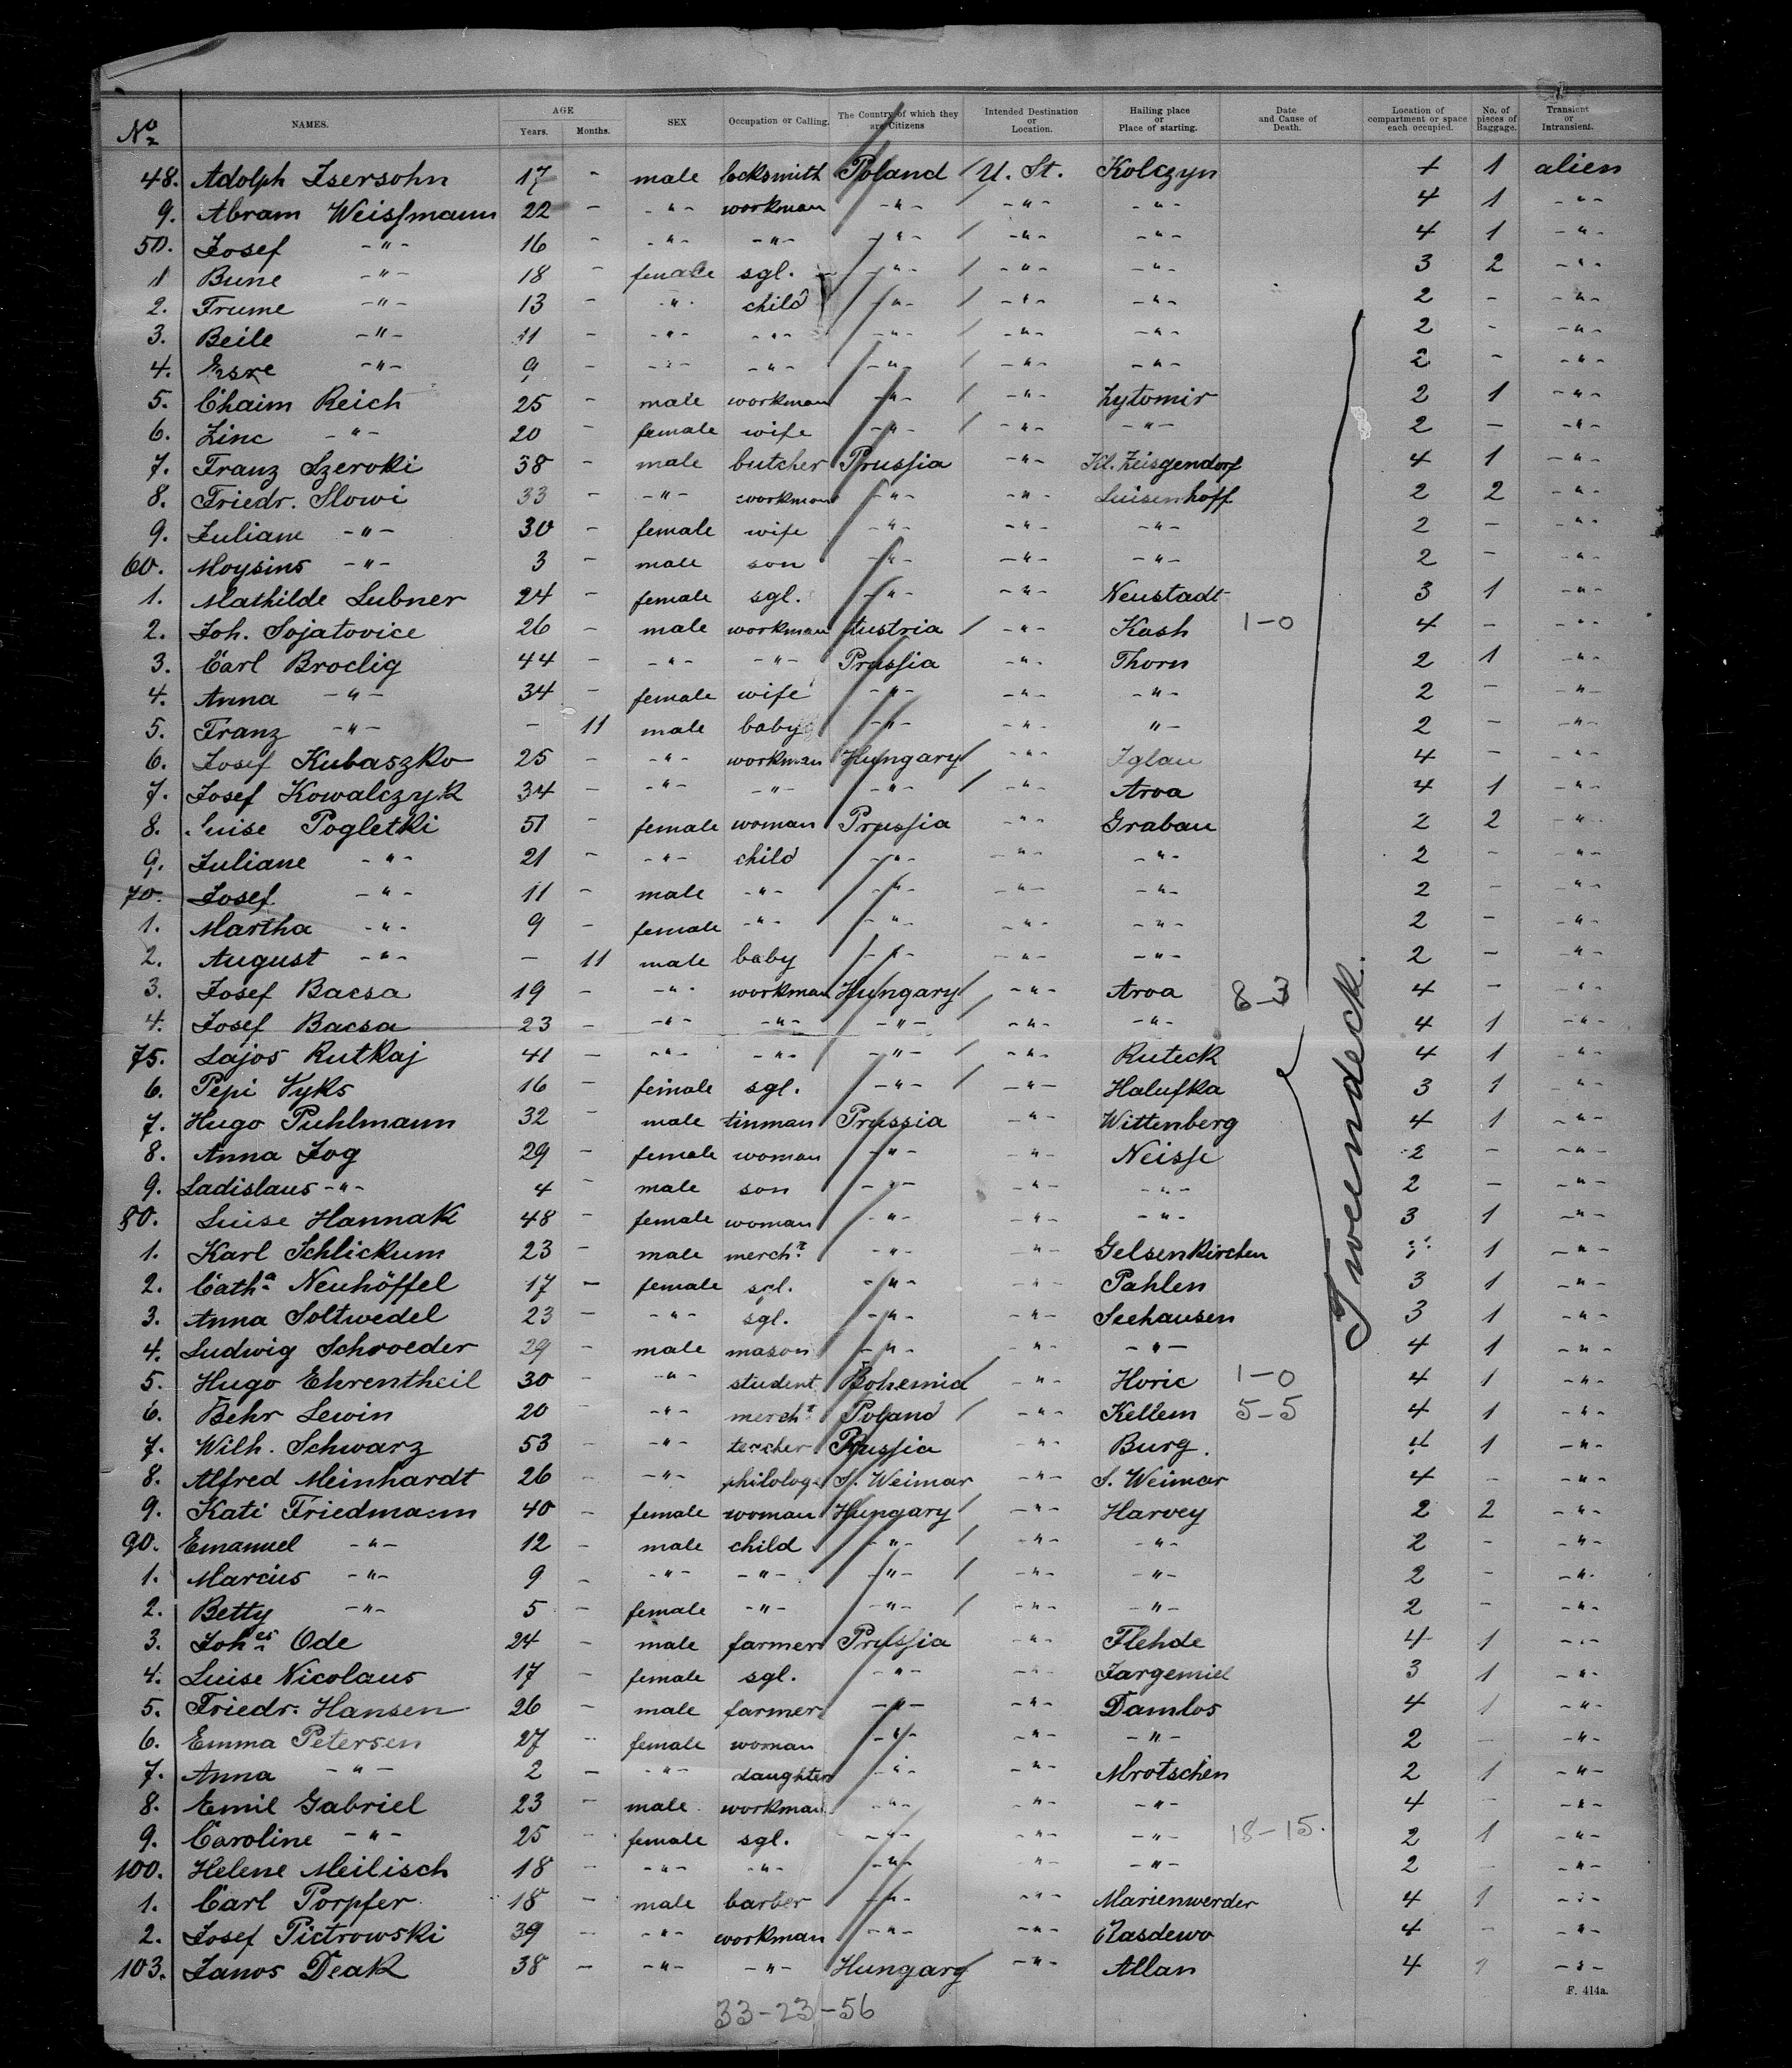 No NAMES. AGE Years. Months. SEX Occupation or Calling. The Country of which they are Citizens Intended Destination or Location. Hailing place or Place of starting. Date and Cause of Death. Location of compartment or space each occupied. No. of pieces of Baggage. Transient or Intransient.
48. Adolph Isersohn 17 - male locksmith Poland / U. St. Kolczyn 4 1 alien
9. Abram Weissmann 22 - -"- workman -"- / -"- -"- 4 1 -"-
50. Josef -"- 16 - -"- -"- -"- / -"- -"- 4 1 -"-
1 Bune -"- 18 - female sgl. -"- / -"- -"- 3 2 -"-
2. Frume -"- 13 - -"- child -"- / -"- -"- 2 - -"-
3. Beile -"- 11 - -"- -"- -"- / -"- -"- 2 - -"-
4. Esre -"- 9 - -"- -"- -"- / -"- -"- 2 - -"-
5. Chaim Reich 25 - male workman -"- / -"- Zytomir 2 1 -"-
6. Zine -"- 20 - female wife -"- / -"- -"- 2 - -"-
7. Franz Szeroki 38 - male butcher Prussia -"- Kl. Zeisgendorf 4 1 -"-
8. Friedr. Slowi 33 - -"- workman -"- -"- Luisenhoff 2 2 -"-
9. Juliane -"- 30 - female wife -"- -"- -"- 2 - -"-
60. Moysius -"- 3 - male son -"- -"- -"- 2 - -"-
1. Mathilde Lubner 24 - female sgl. -"- -"- Neustadt 3 1 -"-
2. Joh. Sojatovice 26 - male workman Austria / -"- Kash 1-0 4 - -"-
3. Carl Brodig 44 - -"- -"- Prussia -"- Thorn 2 1 -"-
4. Anna -"- 34 - female wife -"- -"- -"- 2 - -"-
5. Franz -"- - 11 male baby -"- -"- "- 2 - -"-
6. Josef Kubaszko 25 - -"- workman Hungary / -"- Iglau 4 - -"-
7. Josef Kowalczyk 34 - -"- -"- -"- / -"- Arva 4 1 -"-
8. Luise Pogletki 51 - female woman Prussia -"- Grabau 2 2 -"-
9. Juliane -"- 21 - -"- child -"- -"- -"- 2 - -"-
70. Josef -"- 11 - male -"- -"- -"- -"- 2 - -"-
1. Martha -"- 9 - female -"- -"- -"- -"- 2 - -"-
2. August -"- - 11 male baby -"- -"- -"- 2 - -"-
3. Josef Bacsa 19 - -"- workman Hungary / -"- Arva 8-3 4 - -"-
4. Josef Bacsa 23 - -"- -"- -"- -"- -"- 4 1 -"-
75. Lajos Rutkaj 41 - -"- -"- -"- / -"- Ruteck 4 1 -"-
6. Pepi Vyks 16 - female sgl. -"- / -"- Halufka 3 1 -"-
7. Hugo Puhlmann 32 - male tinman Prussia -"- Wittenberg 4 1 -"-
8. Anna Jog 29 - female woman -"- -"- Neisse 2 - -"-
9. Ladislaus -"- 4 - male son -"- -"- -"- 2 - -"-
80. Luise Hannak 48 - female woman -"- -"- -"- 3 1 -"-
1. Karl Schlickum 23 - male mercht. -"- -"- Gelsenkirchen 1 -"-
2. Catha Neuhöffel 17 - female sgl. -"- -"- Pahlen 3 1 -"-
3. Anna Soltwedel 23 - -"- sgl. -"- -"- Seehausen 3 1 -"-
4. Ludwig Schroeder 29 - male mason -"- -"- -"- 4 1 -"-
5. Hugo Ehrentheil 30 - -"- student Bohemia -"- Horic 1-0 4 1 -"-
6. Behr Lewin 20 - -"- mercht. Poland / -"- Kellem 5-5 4 1 -"-
7. Wilh. Schwarz 53 - -"- teacher Prussia -"- Burg. 4 1 -"-
8. Alfred Meinhardt 26 - -"- philolog S. Weimar -"- S. Weimar 4 - -"-
9. Kati Friedmann 40 - female woman Hungary / -"- Harvey 2 2 -"-
90. Emanuel -"- 12 - male child -"- / -"- -"- 2 - -"-
1. Marcus -"- 9 - -"- -"- -"- / -"- -"- 2 - -"-
2. Betty -"- 5 - female -"- -"- / -"- -"- 2 - -"-
3. Johes Ode 24 - male farmer Prussia -"- Flehde 4 1 -"-
4. Luise Nicolaus 17 - female sgl. -"- -"- Jargemiel 3 1 -"-
5. Friedr. Hansen 26 - male farmer -"- -"- Damlos 4 1 -"-
6. Emma Petersen 27 - female woman -"- -"- -"- 2 - -"-
7. Anna -"- 2 - -"- daughter -"- -"- Mrotschen 2 1 -"-
8. Emil Gabriel 23 - male workman -"- -"- -"- 4 - -"-
9. Caroline -"- 25 - female sgl. -"- -"- -"- 18-15. 2 1 -"-
100. Helene Meilisch 18 - -"- -"- -"- -"- -"- 2 - -"-
1. Carl Porpfer 18 - male barber -"- -"- Marienwerder 4 1 -"-
2. Josef Pietrowski 39 - -"- workman -"- -"- 4 - -"-
103. Janos Deak 38 - -"- -"- Hungary -"- Allan 4 1 -"-
Tweendeck.
F. 414a.
33-23-56